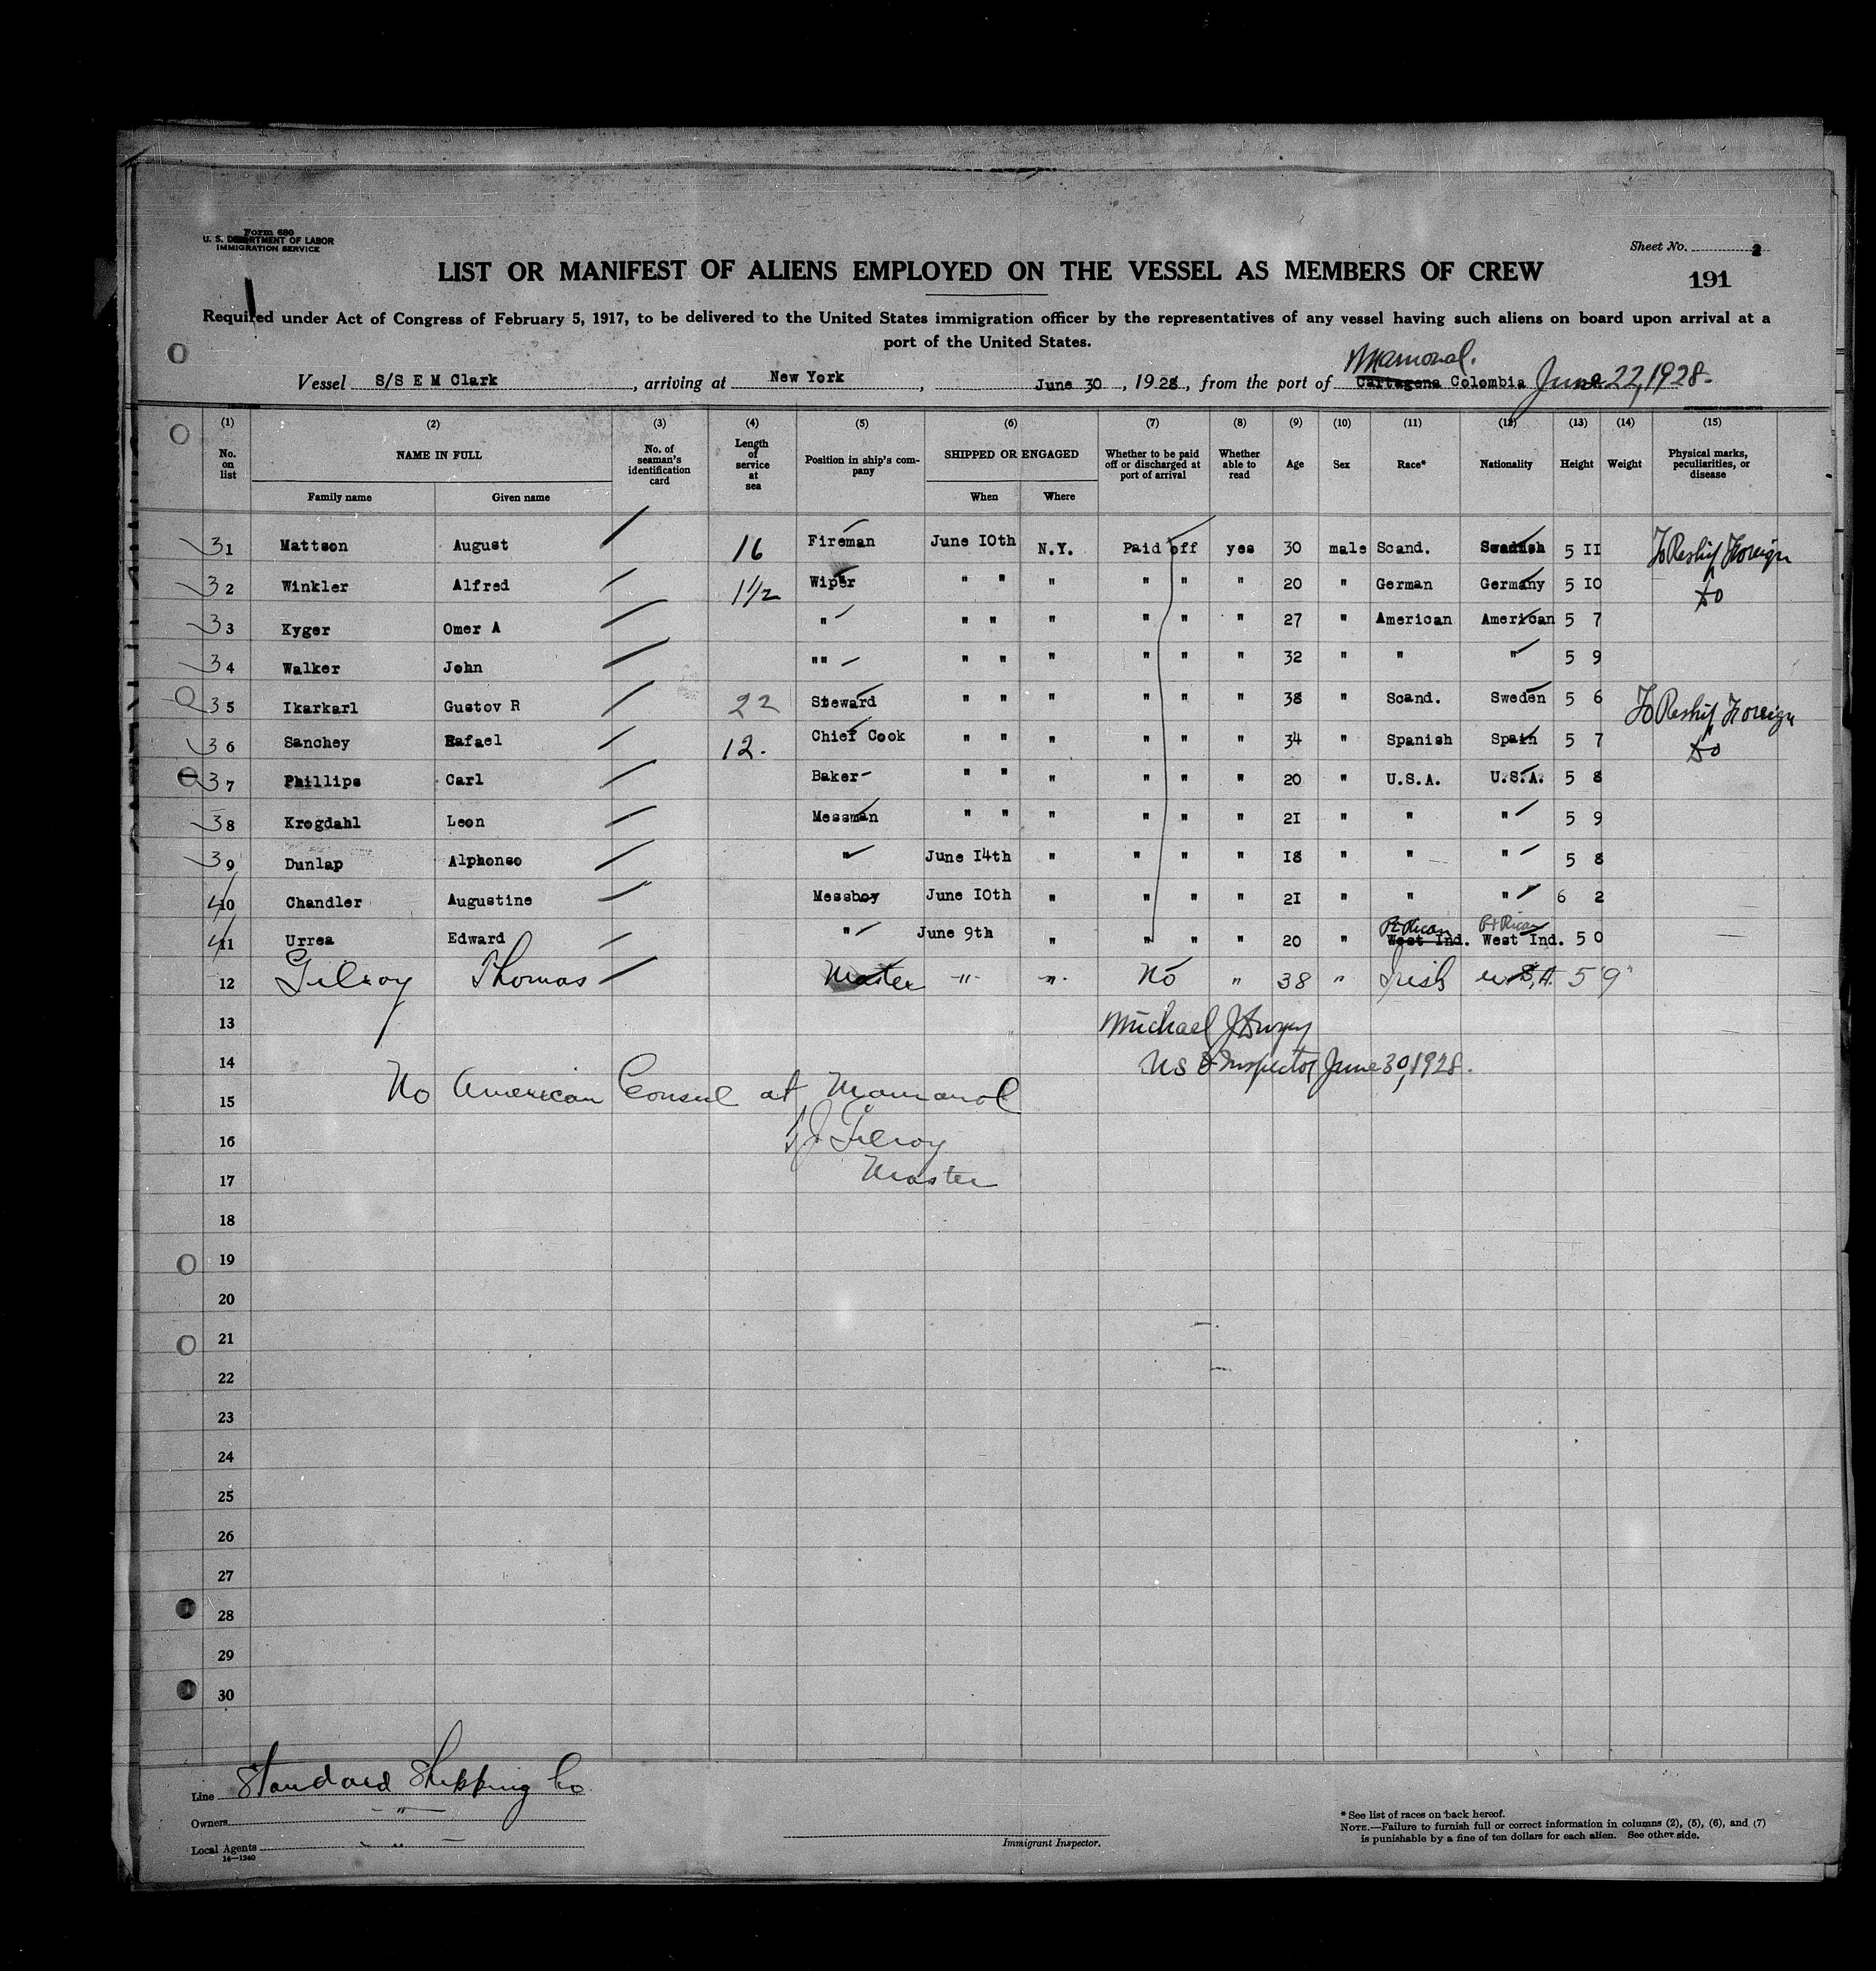 Form 680
U. S. DEPARTMENT OF LABOR
IMMIGRATION SERVICE
Sheet No. 2
191
LIST OR MANIFEST OF ALIENS EMPLOYED ON THE VESSEL AS MEMBERS OF CREW
Required under Act of Congress of February 5, 1917, to be delivered to the United States immigration officer by the representatives of any vessel having such aliens on board upon arrival at a
port of the United States.
Mamonal.
Vessel S/S E M Clark, arriving at New York, June 30, 1928, from the port of Cartagena Colombia June 22, 1928.
(1) (2) (3) (4) (5) (6) (7) (8) (9) (10) (11) (12) (13) (14) (15)
No. on list NAME IN FULL No. of seaman's identification card Length of service at sea Position in ship's company SHIPPED OR ENGAGED Whether to be paid off or discharged at port of arrival Whether able to read Age Sex Race* Nationality Height Weight Physical marks, peculiarities, or disease
Family name Given name When Where
31 Mattson August 16 Fireman June 10th N.Y. Paid off yes 30 male Scand. Swedish 5 11 To Reship Foreign
32 Winkler Alfred 1 1/2 Wiper " " " " " " 20 " German Germany 5 10 do
33 Kyger Omer A " " " " " " " 27 " American American 5 7
34 Walker John "" " " " " " " 32 " " " 5 9
35 Ikarkarl Gustov R 22 Steward " " " " " " 38 " Scand. Sweden 5 6 To Reship Foreign
36 Sanchey Rafael 12. Chief Cook " " " " " " 34 " Spanish Spain 5 7 do
37 Phillips Carl Baker " " " " " " 20 " U.S.A. U.S.A. 5 8
38 Krogdahl Leon Messman " " " " " " 21 " " " 5 9
39 Dunlap Alphonso " June 14th " " " " 18 " " " 5 8
40 10 Chandler Augustine Messboy June 10th " " " " 21 " " " 6 2
Pt Rican Pt Rican
41 11 Urrea Edward " June 9th " " " " 20 " West Ind. West Ind. 5 0
12 Gilroy Thomas Master " " No " 38 " Irish U.S.A. 5'9"
13 Michael J
14 US Inspector June 30, 1928.
15 No American Consul at Mamonal
16 T J Gilroy
17 Master
18
19
20
21
22
23
24
25
26
27
28
29
30
Line Standard Shipping Co
Owners "
Local Agents "
14—1240
Immigrant Inspector.
* See list of races on back hereof.
NOTE.—Failure to furnish full or correct information in columns (2), (5), (6), and (7)
is punishable by a fine of ten dollars for each alien. See other side.